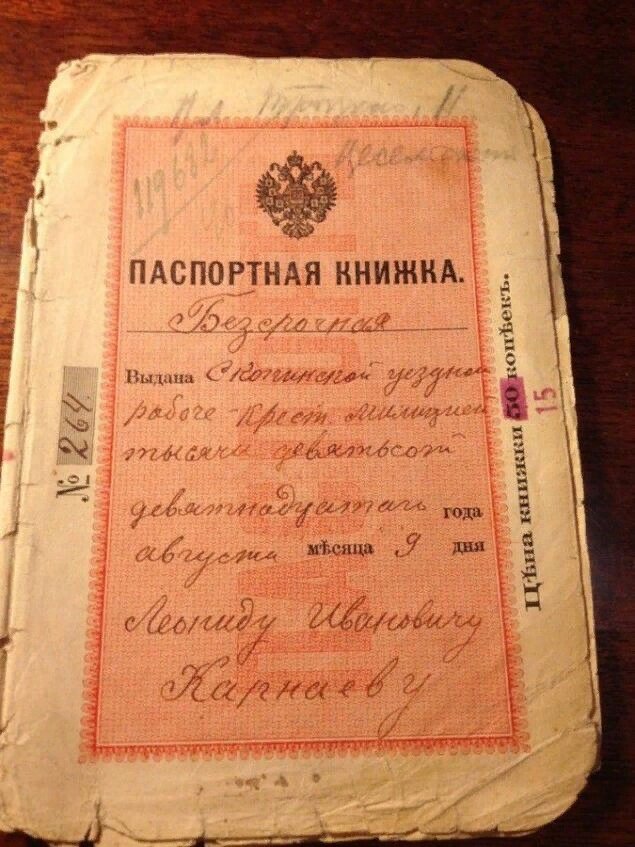 119632
ПАСПОРТНАЯ КНИЖКА.
Безсрочная
Выдана Скопинской уездной
рабоче-крест милицией
тысяча девятьсот
девятнадцатаго года
августа мѣсяца 9 дня
Леониду Ивановичу
Карнаеву
№ 264.
Цѣна книжки 50 копѣекъ.
15